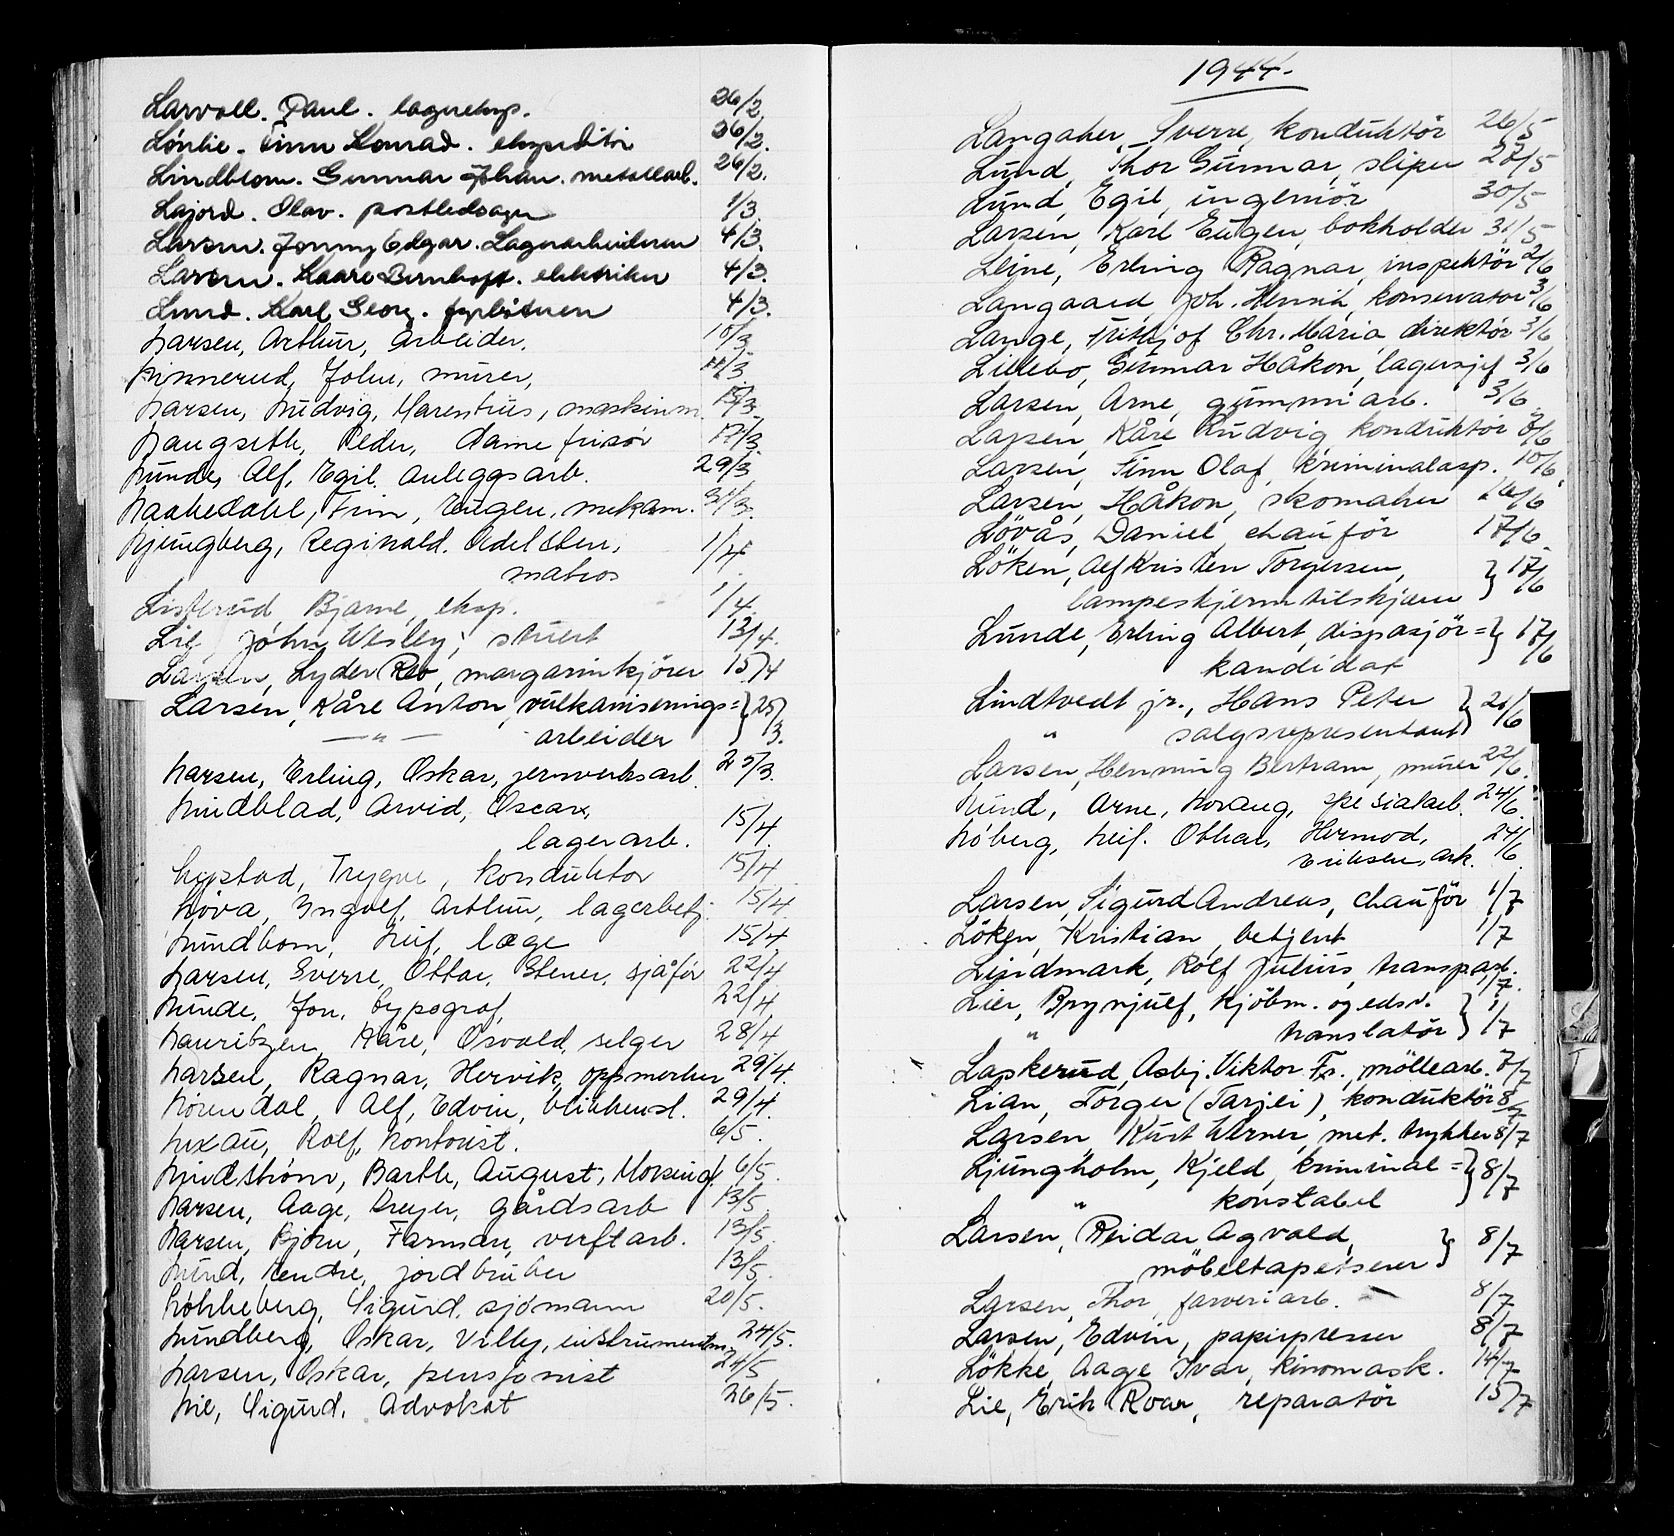 Larvoll. Paul. lagereksp. 26/2
Lönlie. Finn Konrad. ekspeditör 26/2.
Lindblom. Gunnar Johan. metallarb. 26/2.
Lajord. Olav. postledsager 1/3.
Larsen. Jonny Edgar. Lagerarbeideren 4/3.
Larsen. Kaare Bernhoft. elektriker 4/3.
Lund. Karl Georg. 4/3.
Larsen, Arthur, Arbeider. 10/3
John, murer, 11/3
Larsen, Ludvig, Marentius, maskinm. 15/3.
Laugseth, Peder, Dame frisör 17/3.
Lunde, Alf, Egil. anleggsarb. 29/3.
Laabedahl, Finn, Eugen, mekan. 31/3.
Ljungberg, Reginald. Adelsten, 1/4.
matros
Listerud Bjarne, eksp. 1/4.
Lie, John Wesley, stuert 13/4.
Larsen, Lyder Reo, margarinkjörer 15/4
Larsen, Kåre Anton, vulkaniserings= } 25/3.
— " — arbeider
Larsen, Erling, Oskar, jernverksarb. 25/3.
Lindblad, Arvid, Oscar,
lagerarb. 15/4.
Lystad, Trygve, konduktör 15/4.
Löva, Ingolf, Arthur, lagerbetj. 15/4.
Lundbom, Leif, læge 15/4
Larsen, Sverre, Ottar, Stener, sjåför 22/4
Lunde, Jon, typograf, 22/4
Lauritzen, Kåre, Osvald, selger 28/4
Larsen, Ragnar, Hervik, oppmerker 29/4.
Lörendal, Alf, Edvin, blikkensl. 29/4.
Lexau, Rolf, kontorist. 6/5.
Lindström, Barthe, August, 6/5.
Larsen, Aage, Dreyer, gårdsarb 13/5
Larsen, Björn, Farman, verftarb. 13/5.
Lund, Sendre, jordbruker 13/5.
Lökkeberg, Sigurd, sjömann 20/5.
Lundberg, Oskar, Villy, instrumentm. 24/5.
Larsen, Oskar, pensjonist 24/5
Lie, Sigurd, Advokat 26/5.
1944.
Langaker, Sverre, konduktör 26/5
Lund, Thor Gunnar, sliper 27/5
Lund, Egil, ingeniör 30/5
Larsen, Karl Eugen, bokholder 31/5
Leine, Erling Ragnar, inspektör 2/6
Langaard, Joh. Henrik, konservator 3/6
Lange, Frithjof Chr. Maria, direktör 3/6
Lillebo, Gunnar Håkon, lagersjef 3/6
Larsen, Arne, gummiarb. 3/6.
Larsen, Kåre Rudvig, konduktör 8/6
Larsen, Finn Olaf, kriminalasp. 10/6.
Larsen, Håkon, skomaker 16/6
Lövås, Daniel, chauför 17/6.
Löken, Alf Kristen Torgersen, } 17/6
lampeskjermtilskjærer
Lunde, Erling Albert, dispasjör= } 17/6
kandidat
Lindtvedt jr., Hans Peter } 21/6
" salgsrepresentant
Larsen, Henning Bertram, murer 22/6.
Lund, Arne, Lorang, spesialarb. 24/6.
Löberg, Leif. Othar, Hermod, 24/6.
Eriksen, ark.
Larsen, Sigurd Andreas, chauför 1/7
Löken, Kristian, betjent 1/7
Lindmark, Rolf Julius, transp.arb. 1/7.
Lier, Brynjulf, kjöbm. og edsv. } 1/7
" translatör
Laskerud, Asbj. Viktor Fr., möllearb. 7/7
Lian, Torger (Tarjei), konduktör 8/7
Larsen, Kurt Werner, met. trykker 8/7
Ljungholm, Kjeld, kriminal= } 8/7
" konstabel
Larsen, Reidar Agvald, } 8/7
möbeltapetserer
Larsen, Thor, farveriarb. 8/7
Larsen, Edvin, papirpresser 8/7
Lökke, Aage Ivar, kinomask. 14/7
Lie, Erik Roar, reparatör 15/7